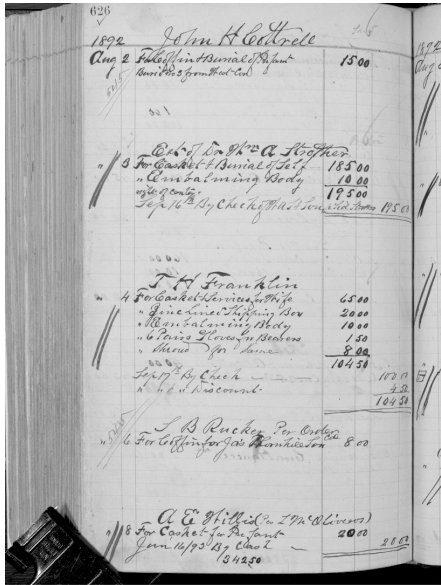 626
1892 John H Cottrele
Aug 2 For Coffin & Burial of Infant 15 00
Buried No 3 from West End
Est of Dr Wm A Strother
" 3 For Casket & Burial of Self 185 00
" Embalming Body 10 00
195 00
Sep 16th By Check of 195 00
T H Franklin
" 4 For Casket & Services for Wife 65 00
" Zinc Lined Shipping Box 20 00
" Embalming Body 10 00
" 6 Pairs Gloves for Bearers 1 50
" Shroud for Same 8 00
104 50
Sep 17th By Check 100 00
" " " " Discount 4 50
104 50
S B Rucker Per Order
" 6 For Coffin for Jas Son 8 00
A E Willis (Per L Mc Oliveros)
" 8 For Casket for Infant 20 00
Jan 16/93 By Cash 20 00
342 50